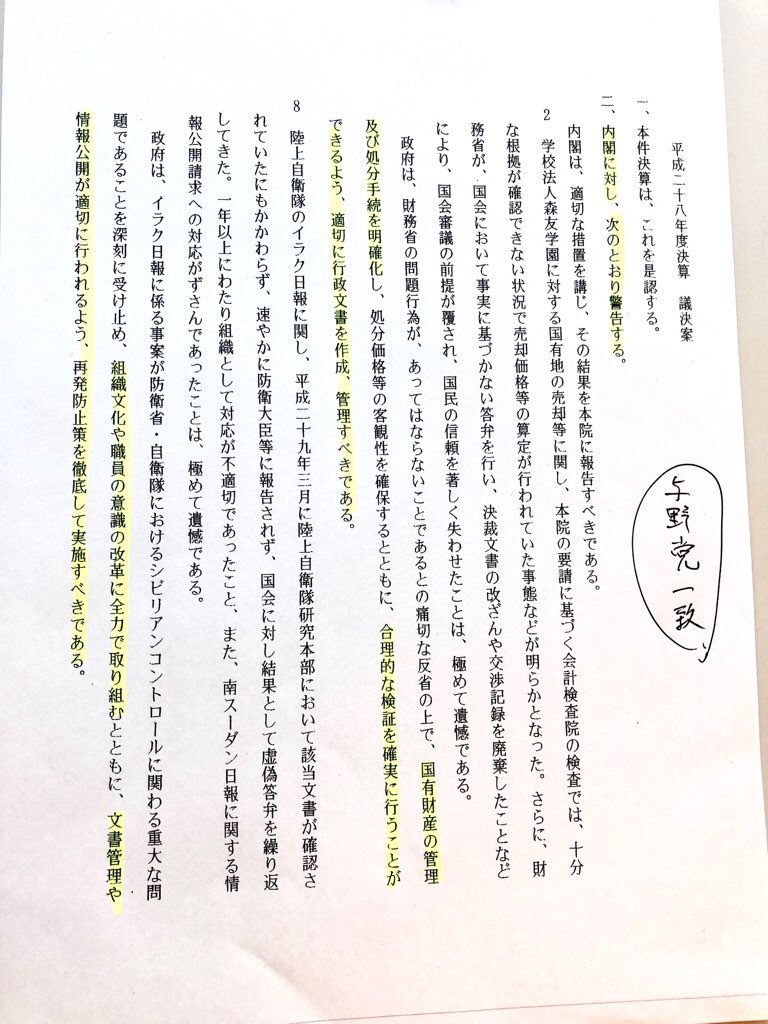 平成二十八年度決算　議決案
一、本件決算は、これを是認する。
二、内閣に対し、次のとおり警告する。
内閣は、適切な措置を講じ、その結果を本院に報告すべきである。
2　学校法人森友学園に対する国有地の売却等に関し、本院の要請に基づく会計検査院の検査では、十分
な根拠が確認できない状況で売却価格等の算定が行われていた事態などが明らかとなった。さらに、財
務省が、国会において事実に基づかない答弁を行い、決裁文書の改ざんや交渉記録を廃棄したことなど
により、国会審議の前提が覆され、国民の信頼を著しく失わせたことは、極めて遺憾である。
政府は、財務省の問題行為が、あってはならないことであるとの痛切な反省の上で、国有財産の管理
及び処分手続を明確化し、処分価格等の客観性を確保するとともに、合理的な検証を確実に行うことが
できるよう、適切に行政文書を作成、管理すべきである。
8　陸上自衛隊のイラク日報に関し、平成二十九年三月に陸上自衛隊研究本部において該当文書が確認さ
れていたにもかかわらず、速やかに防衛大臣等に報告されず、国会に対し結果として虚偽答弁を繰り返
してきた。一年以上にわたり組織として対応が不適切であったこと、また、南スーダン日報に関する情
報公開請求への対応がずさんであったことは、極めて遺憾である。
政府は、イラク日報に係る事案が防衛省・自衛隊におけるシビリアンコントロールに関わる重大な問
題であることを深刻に受け止め、組織文化や職員の意識の改革に全力で取り組むとともに、文書管理や
情報公開が適切に行われるよう、再発防止策を徹底して実施すべきである。
与野党一致